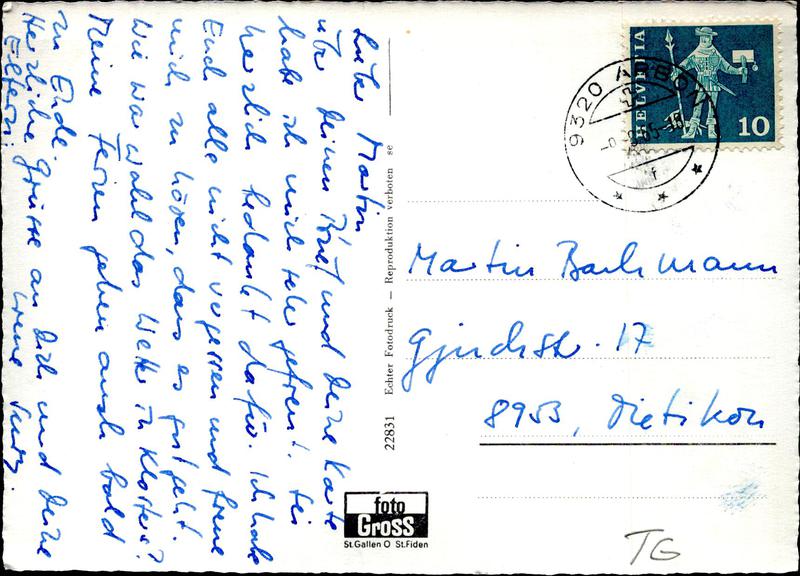 Lieber Martin
über Deinen Brief und Deine Karte
habe ich mich sehr gefreut. Sei
herzlich bedankt dafür. Ich habe
Euch alle nicht vergessen und freue
mich zu hören, dass es gut geht.
Wie war wohl das Wetter in Klosters?
Meine Ferien gehen auch bald
zu Ende.
Herzliche Grüsse an Dich und Deine
Eltern:
22831 Echter Fotodruck — Reproduktion verboten se
foto
GROSS
St.Gallen O St.Fiden
HELVETIA
10
9320 ARBON
Martin Bachmann
Gjuchstr. 17
8953, Dietikon
TG